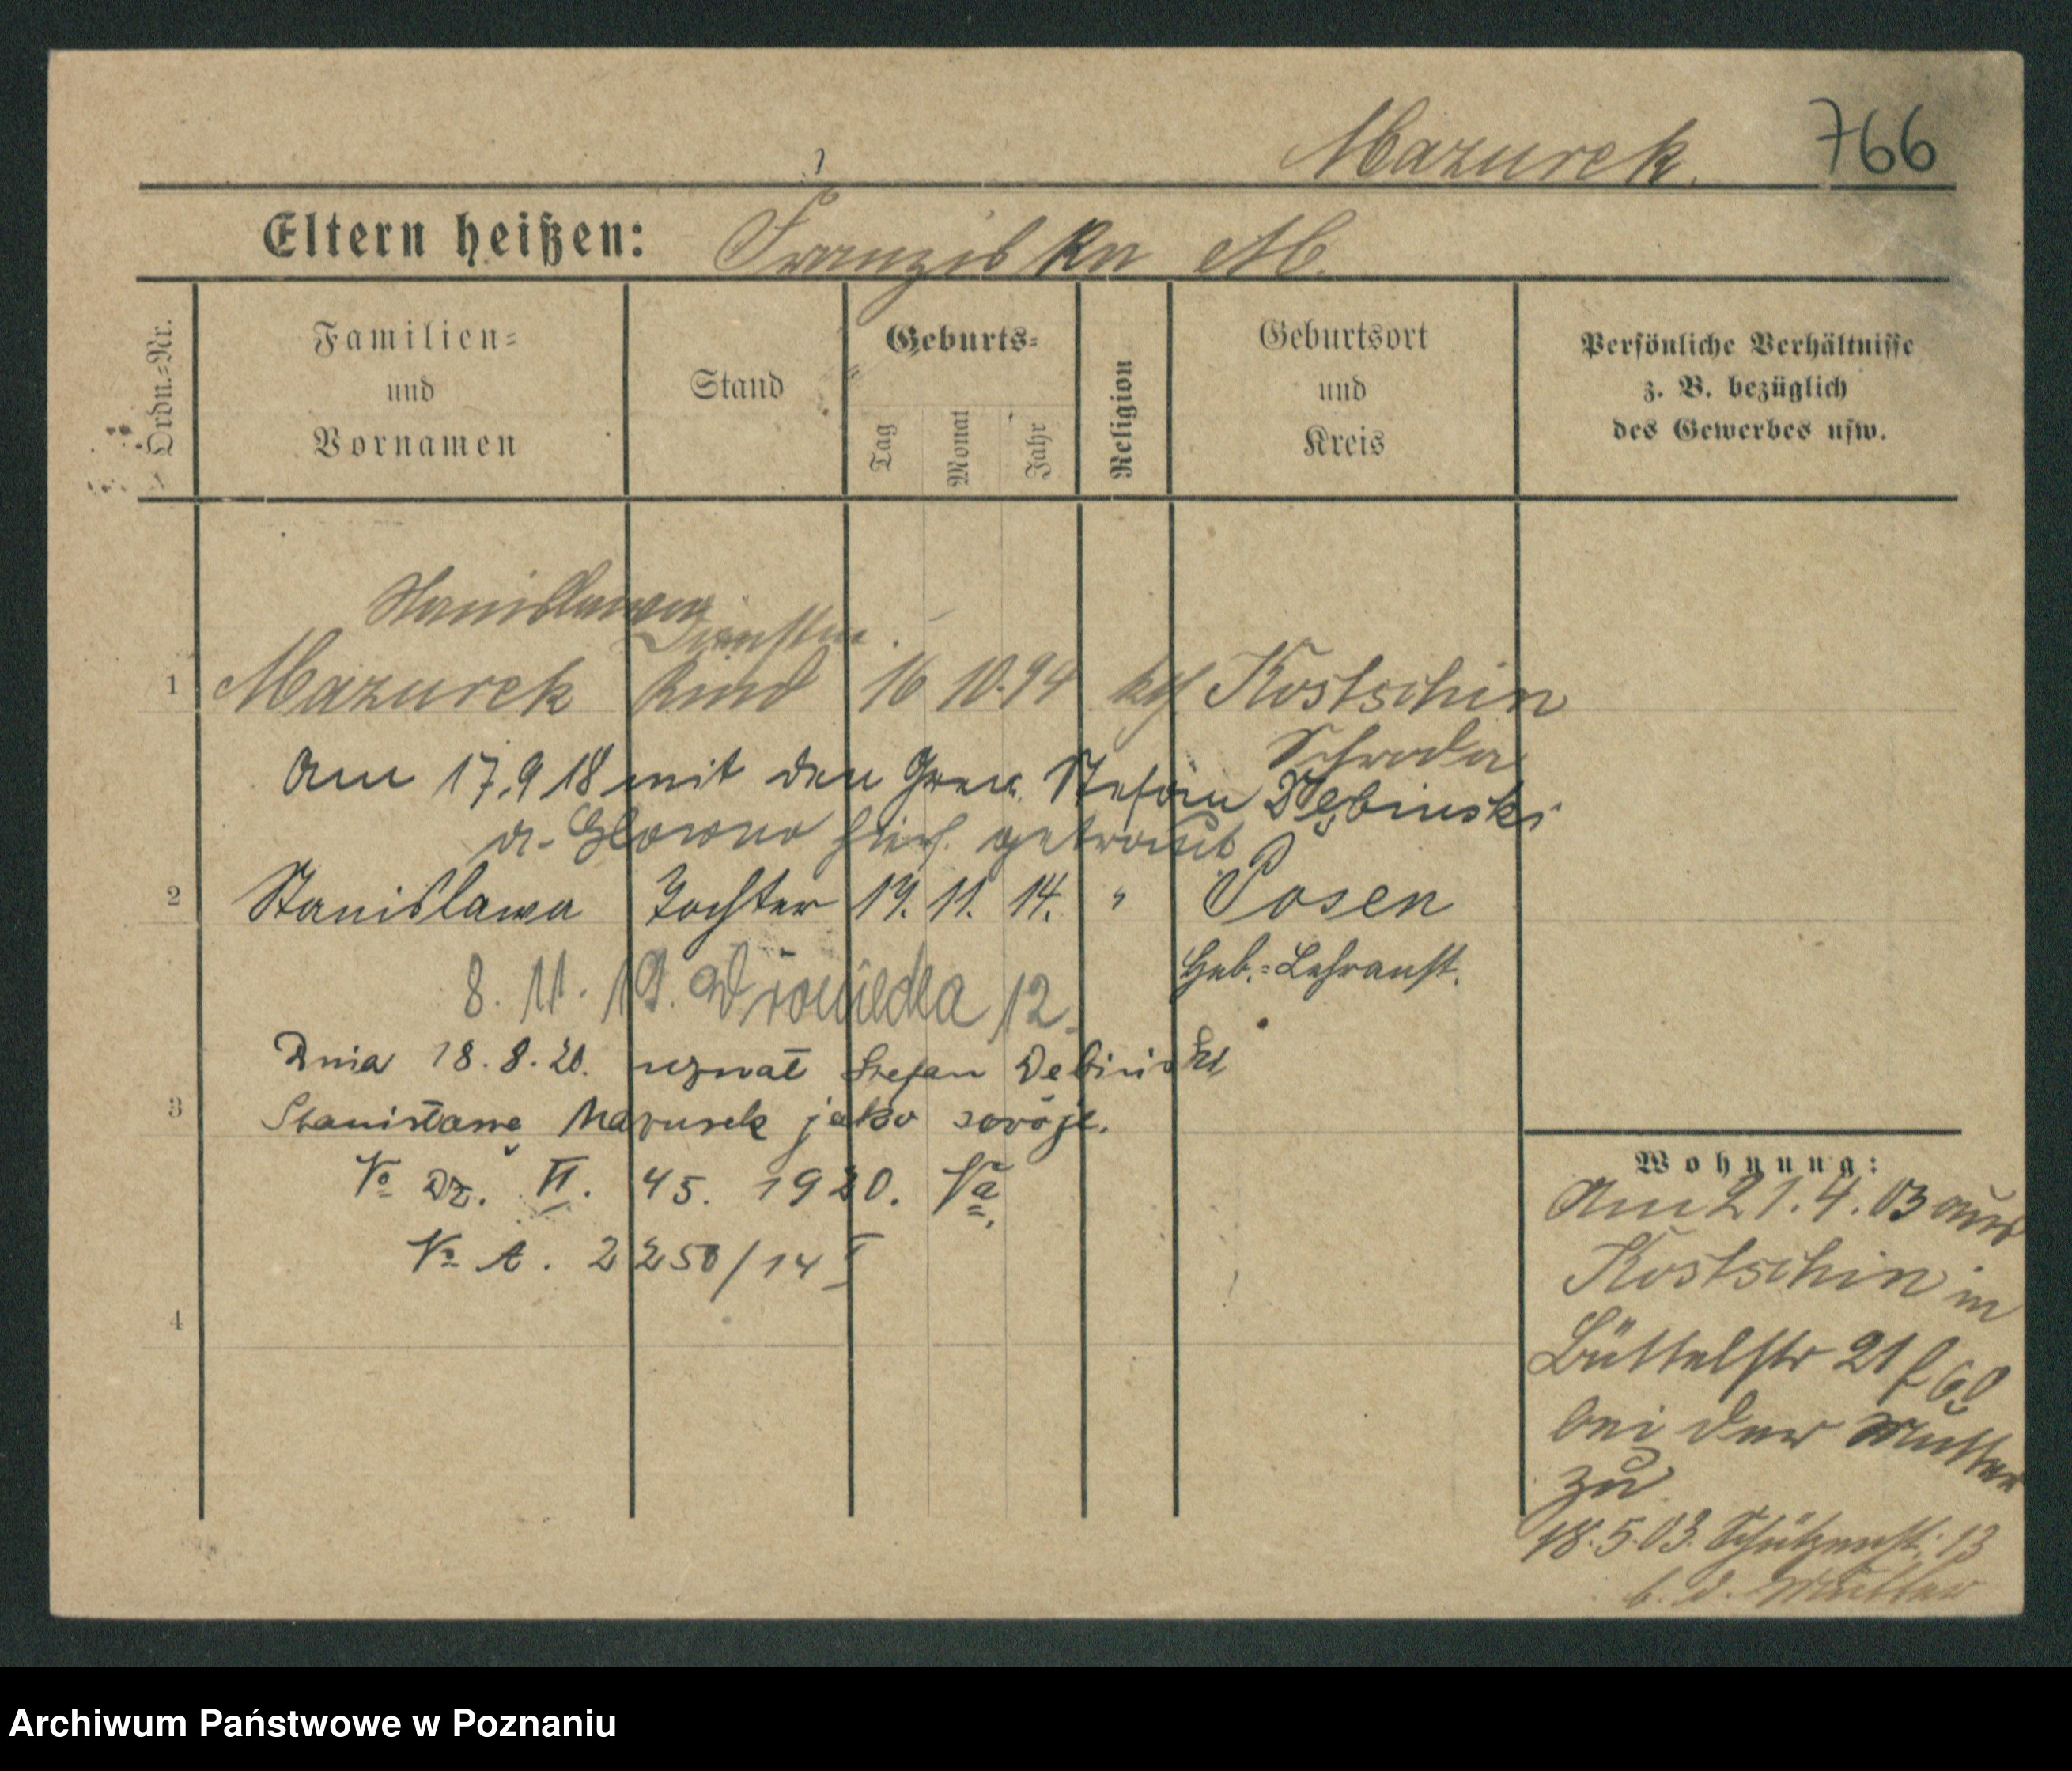 Mazurek. 766
Eltern heißen: Franziska M.
Ordn.-Nr.
Familien-
und
Vornamen
Stand
Geburts-
Tag
Monat
Jahr
Religion
Geburtsort
und
Kreis
Persönliche Verhältnisse
z. B. bezüglich
des Gewerbes usw.
Stanislawa
1 Mazurek Kind 16 10. 94 kth Kostschin
Schroda
Am 17.9 18 mit dem Stefan Dębinski
a. Glowno hies. getraut
2 Stanislawa Tochter 19. 11. 14. " Posen
Geb.=Lehranst.
8. 11. 19. 12.
Dnia 18. 8. 20. uznał Stefan Debiński
3 Stanisławę Mazurek jako swoje.
No Dz. VI. 45. 1920. Va
No A. 2250/14 I
4
Wohnung:
Am 21. 4. 03 aus
Kostschin in
Büttelstr 21
bei der Mutter
zu
18. 5. 03. Schützenst. 13
b. d. Mutter
Archiwum Państwowe w Poznaniu